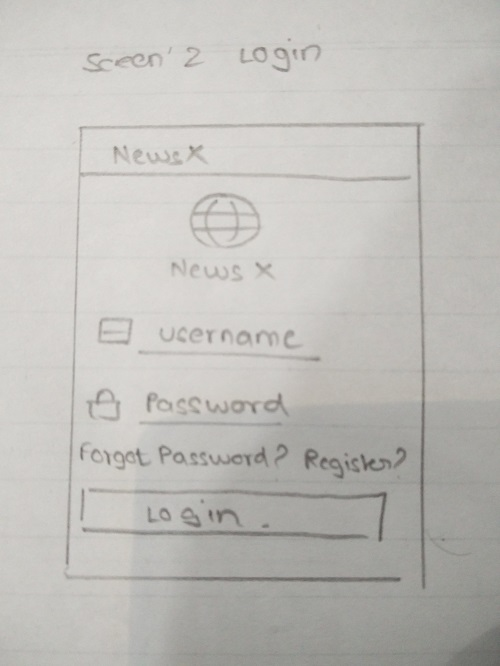 Sceen' 2 Login
NewsX
News X
username
Password
Forgot Password? Register?
Login.